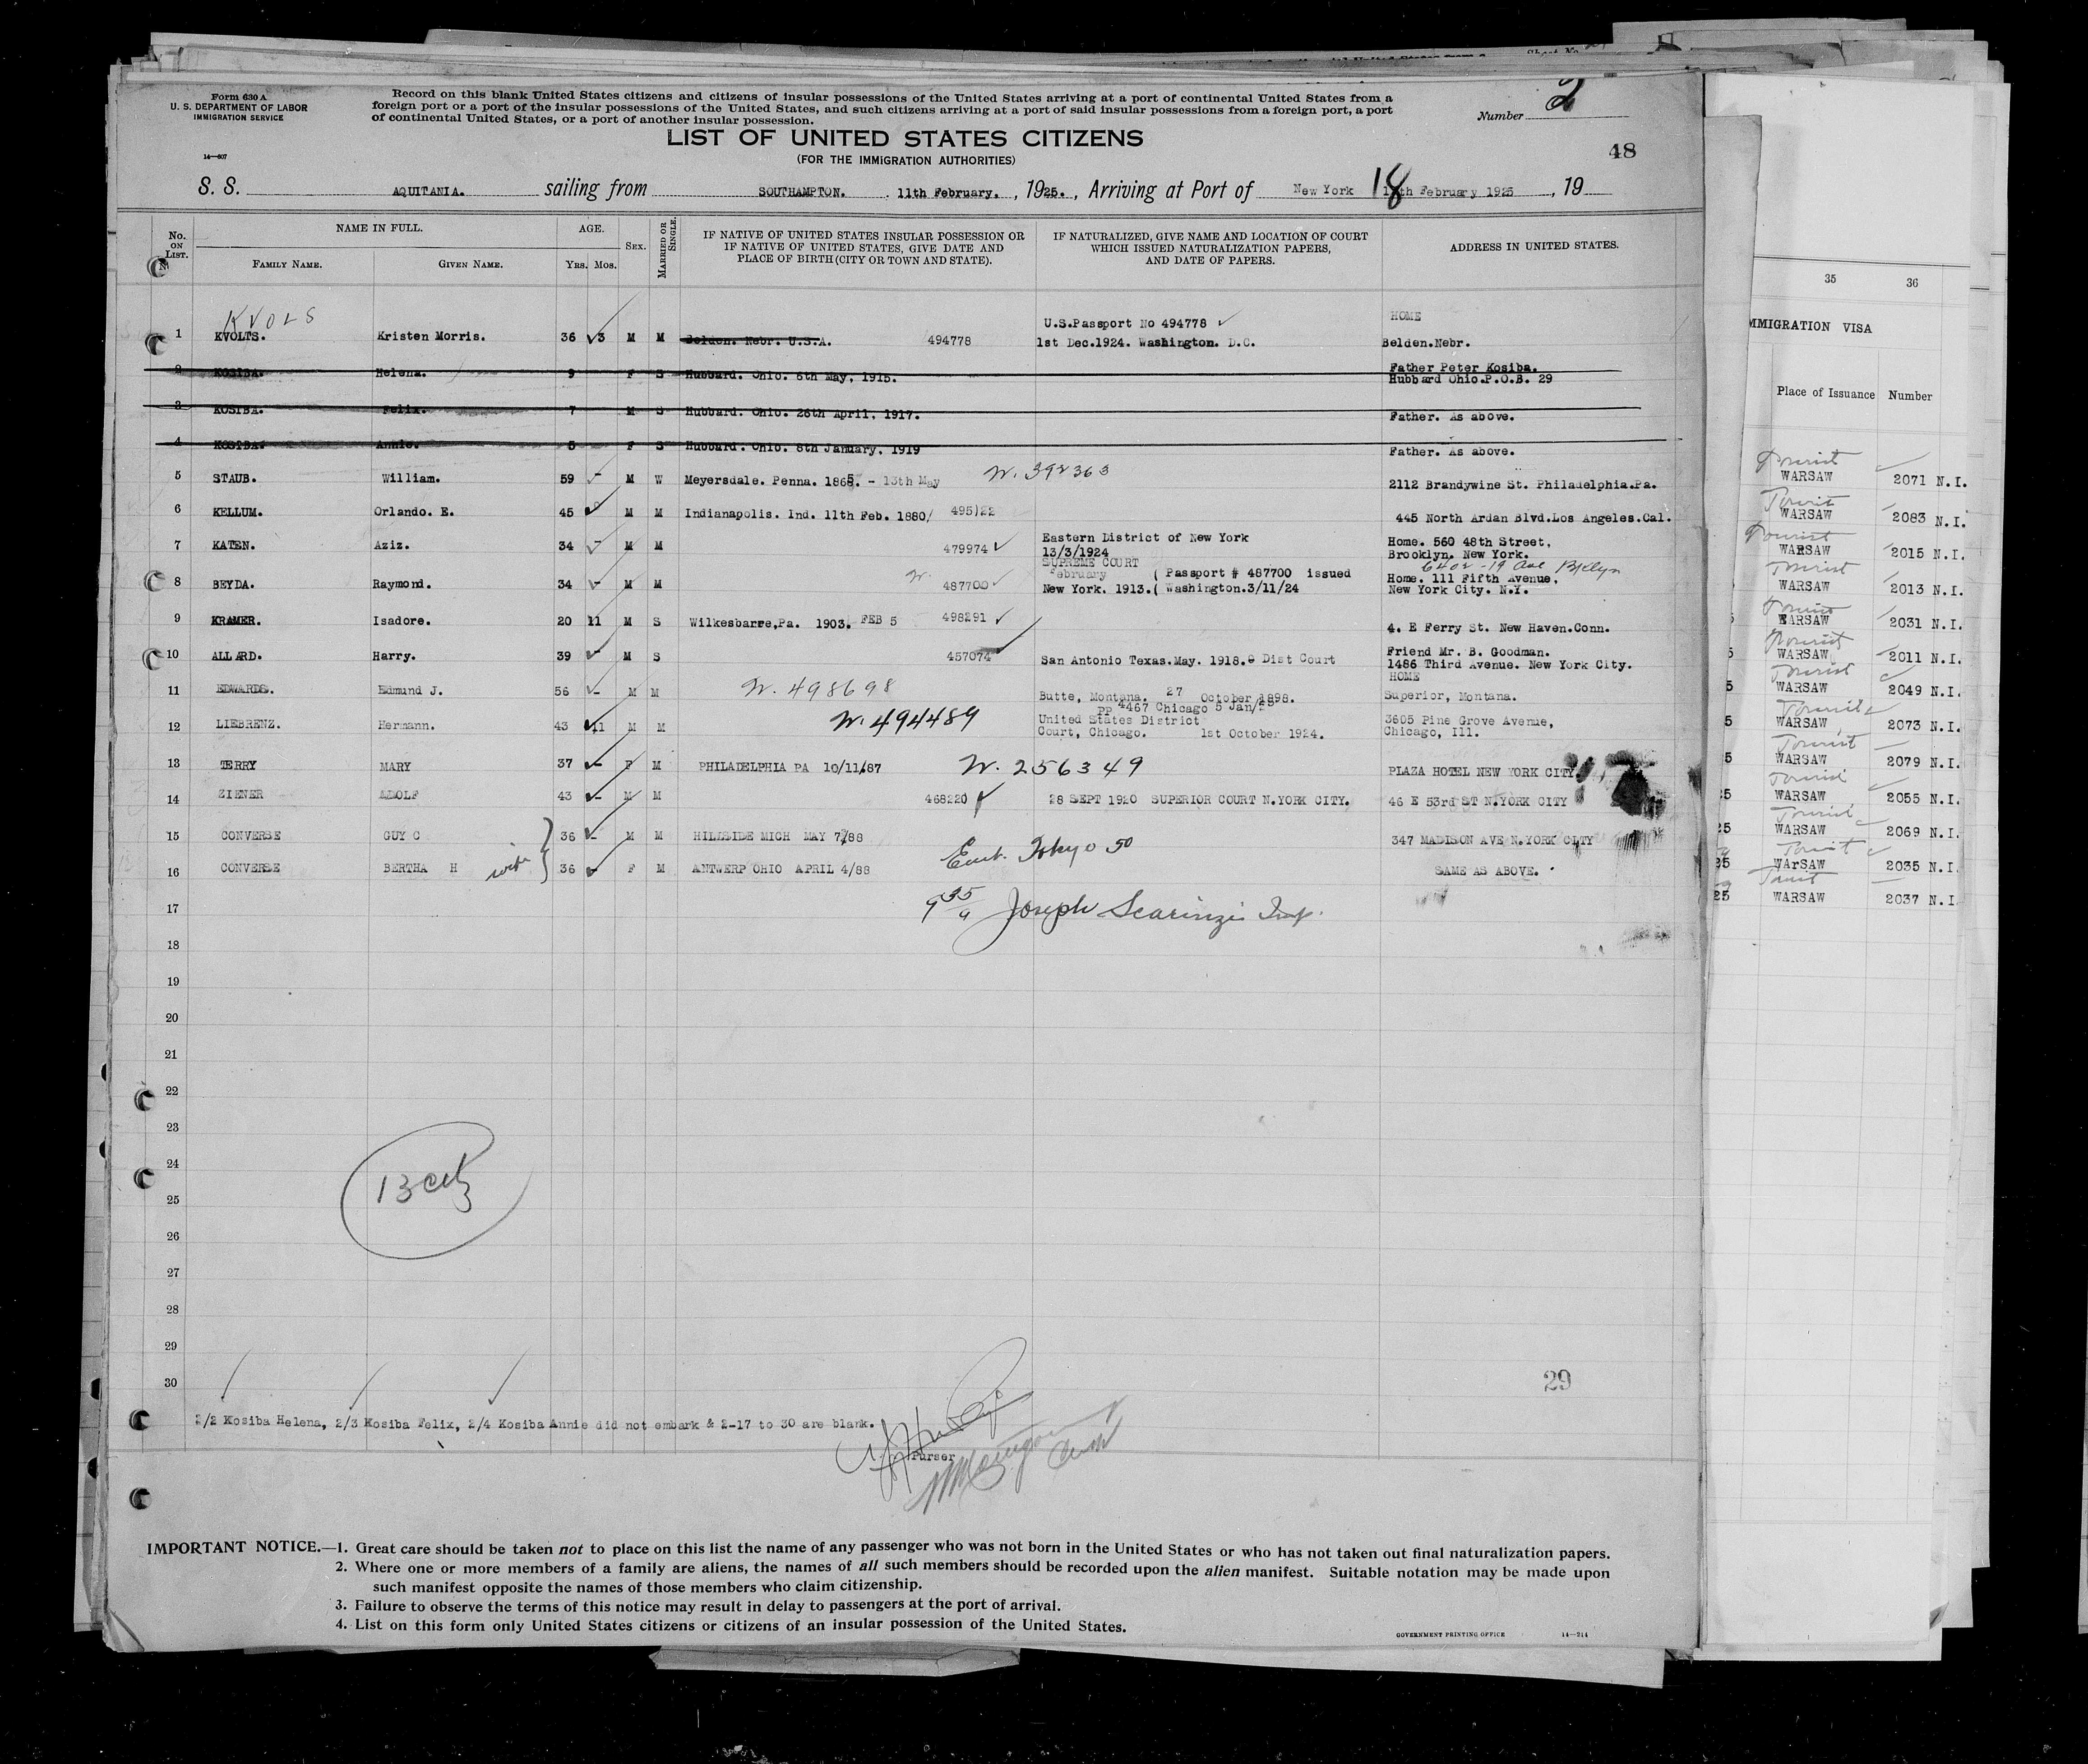 Form 630 A
U. S. DEPARTMENT OF LABOR
IMMIGRATION SERVICE
14—607
Record on this blank United States citizens and citizens of insular possessions of the United States arriving at a port of continental United States from a
foreign port or a port of the insular possessions of the United States, and such citizens arriving at a port of said insular possessions from a foreign port, a port
of continental United States, or a port of another insular possession.
LIST OF UNITED STATES CITIZENS
(FOR THE IMMIGRATION AUTHORITIES)
Number 2
48
S. S. AQUITANIA. sailing from SOUTHAMPTON. 11th February. , 1925. , Arriving at Port of New York 18 th February 1925 , 19
No. ON LIST.
NAME IN FULL.
FAMILY NAME. GIVEN NAME.
AGE.
Yrs. Mos.
SEX.
MARRIED OR SINGLE.
IF NATIVE OF UNITED STATES INSULAR POSSESSION OR
IF NATIVE OF UNITED STATES, GIVE DATE AND
PLACE OF BIRTH (CITY OR TOWN AND STATE).
IF NATURALIZED, GIVE NAME AND LOCATION OF COURT
WHICH ISSUED NATURALIZATION PAPERS,
AND DATE OF PAPERS.
ADDRESS IN UNITED STATES.
KVOLS
U.S.Passport No 494778 HOME
1 KVOLTS. Kristen Morris. 36 3 M M Belden. Nebr. U.S.A. 494778 1st Dec.1924. Washington. D.C. Belden.Nebr.
2 KOSIBA. Helena. 9 F S Hubbard. Ohio. 6th May, 1915. Father Peter Kosiba.
Hubbard Ohio.P.O.B. 29
3 KOSIBA. Felix. 7 M S Hubbard. Ohio. 26th April, 1917. Father. As above.
4 KOSIBA. Annie. 5 F S Hubbard. Ohio. 8th January, 1919 Father. As above.
5 STAUB. William. 59 M W Meyersdale. Penna. 1865. - 13th May W. 392363 2112 Brandywine St. Philadelphia.Pa.
6 KELLUM. Orlando. E. 45 M M Indianapolis. Ind. 11th Feb. 1880/ 495122 445 North Ardan Blvd.Los Angeles.Cal.
7 KATEN. Aziz. 34 M M 479974 Eastern District of New York Home. 560 48th Street,
13/3/1924 Brooklyn. New York.
SUPREME COURT 6402-19 Ave Bklyn
8 BEYDA. Raymond. 34 M M W. 487700 February ( Passport # 487700 issued Home. 111 Fifth Avenue,
New York. 1913.( Washington.3/11/24 New York City. N.Y.
9 KRAMER. Isadore. 20 11 M S Wilkesbarre,Pa. 1903. FEB 5 498291 4. E Ferry St. New Haven.Conn.
10 ALLARD. Harry. 39 M S 457074 San Antonio Texas.May. 1918. Dist Court Friend Mr. B. Goodman.
1486 Third Avenue. New York City.
HOME
11 EDWARDS. Edmund J. 56 M M W. 498698 Butte, Montana. 27 October 1898. Superior, Montana.
PP 4467 Chicago 5 Jan/25
12 LIEBRENZ. Hermann. 43 11 M M W. 494489 United States District 3605 Pine Grove Avenue,
Court, Chicago. 1st October 1924. Chicago, Ill.
13 TERRY MARY 37 F M PHILADELPHIA PA 10/11/87 W. 256349 PLAZA HOTEL NEW YORK CITY
14 ZIENER ADOLF 43 M M 468220 28 SEPT 1920 SUPERIOR COURT N.YORK CITY. 46 E 53rd ST N.YORK CITY
15 CONVERSE GUY C 36 M M HILLSIDE MICH MAY 7/88 347 MADISON AVE N.YORK CITY
16 CONVERSE BERTHA H wife 36 F M ANTWERP OHIO APRIL 4/88 Emb. Tokyo 50 SAME AS ABOVE.
17 Joseph Scarinzi Insp.
18
19
20
21
22
23
24
25
26
27
28
29
30
29
2/2 Kosiba Helena, 2/3 Kosiba Felix, 2/4 Kosiba Annie did not embark & 2-17 to 30 are blank.
Purser
IMPORTANT NOTICE.—1. Great care should be taken not to place on this list the name of any passenger who was not born in the United States or who has not taken out final naturalization papers.
2. Where one or more members of a family are aliens, the names of all such members should be recorded upon the alien manifest. Suitable notation may be made upon
such manifest opposite the names of those members who claim citizenship.
3. Failure to observe the terms of this notice may result in delay to passengers at the port of arrival.
4. List on this form only United States citizens or citizens of an insular possession of the United States.
GOVERNMENT PRINTING OFFICE 14—214
35 36
MMIGRATION VISA
Place of Issuance Number
Tourist
WARSAW 2071 N.I.
Tourist
WARSAW 2083 N.I.
Tourist
WARSAW 2015 N.I.
Tourist
WARSAW 2013 N.I.
Tourist
WARSAW 2031 N.I.
Tourist
5 WARSAW 2011 N.I.
Tourist
5 WARSAW 2049 N.I.
Tourist
5 WARSAW 2073 N.I.
Tourist
5 WARSAW 2079 N.I.
Tourist
25 WARSAW 2055 N.I.
Tourist
25 WARSAW 2069 N.I.
Tourist
25 WArSAW 2035 N.I.
Tourist
25 WARSAW 2037 N.I.